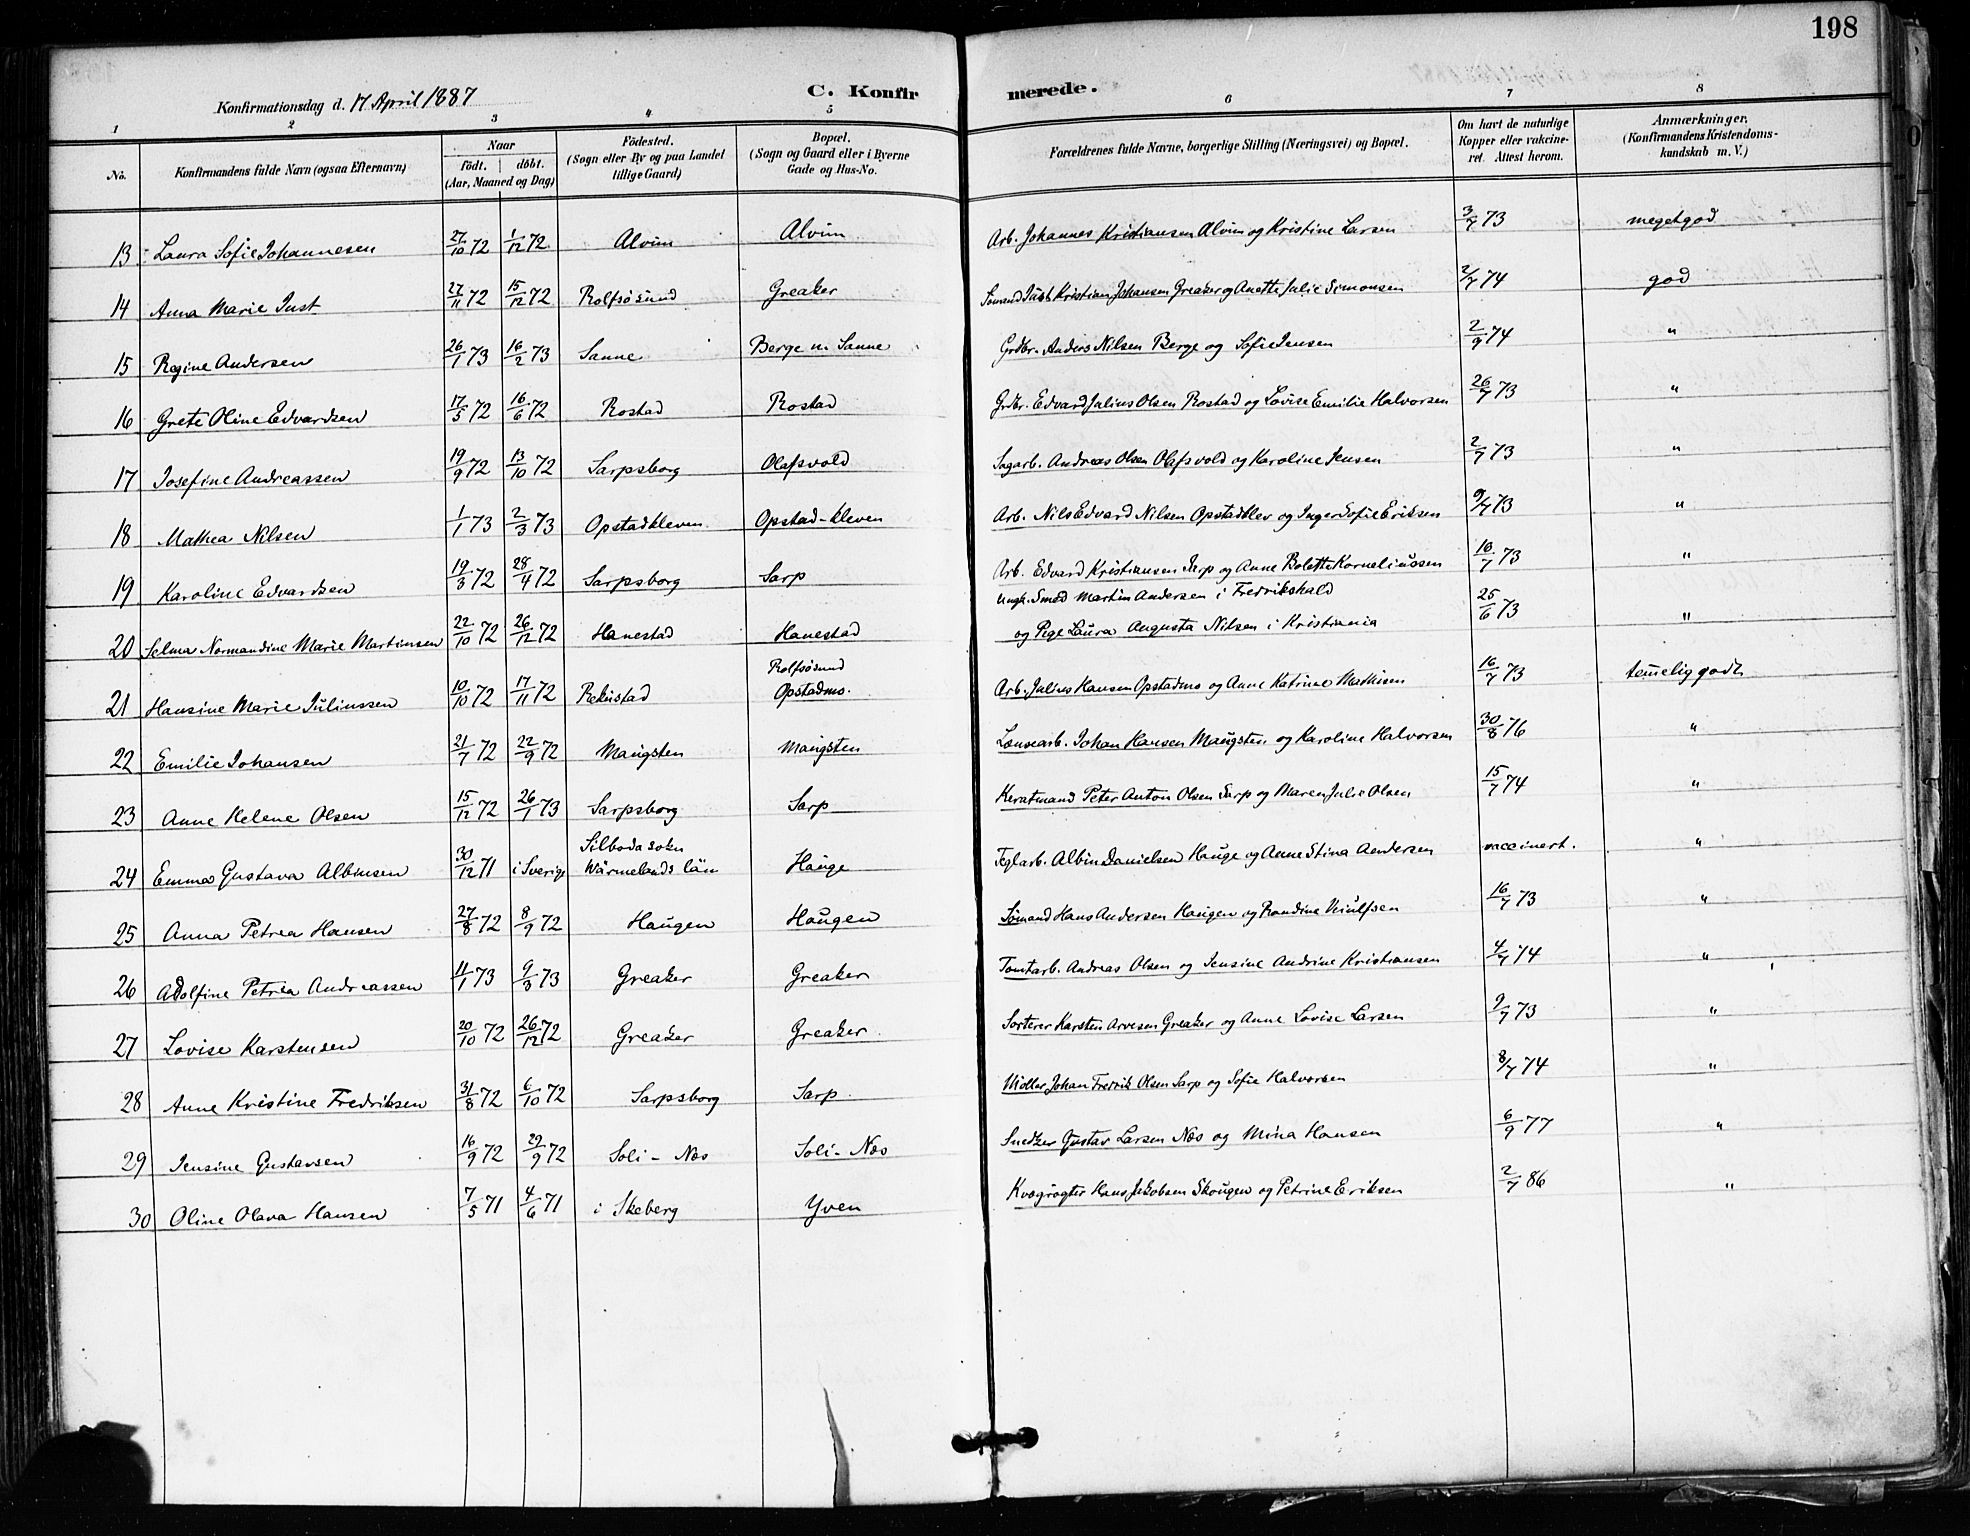 198
Konfirmationsdag d. 17 April 1887
C. Konfirmerede.
1 2 3 4 5 6 7 8
No. Konfirmandens fulde Navn (ogsaa Efternavn) Naar født. døbt. (Aar, Maaned og Dag) Fødested. (Sogn eller By og paa Landet tillige Gaard) Bopæl. (Sogn og Gaard eller i Byerne Gade og Hus-No. Forældrenes fulde Navne, borgerlige Stilling (Næringsvei) og Bopæl. Om havt de naturlige Kopper eller vakcineret. Attest herom. Anmærkninger. (Konfirmandens Kristendomskundskab m. V.)
13 Laura Sofie Johannesen 27/10 72 1/12 72 Alvim Alvim Arb. Johannes Kristiansen Alvim og Kristine Larsen 3/7 73 megetgod
14 Anna Marie Just 27/11 72 15/12 72 Rolfsøsund Greaker Sømand Just Kristian Johansen Greaker og Anette Julie Simonsen 2/7 74 god
15 Regine Andersen 26/1 73 16/2 73 Sanne Berge u. Sanne Grdbr. Anders Nilsen Berge og Sofie Jensen 2/9 74 "
16 Grete Oline Edvardsen 17/5 72 16/6 72 Rostad Rostad Grdbr. Edvard Julius Olsen Rostad og Lovise Emilie Halvorsen 26/7 73 "
17 Josefine Andreassen 19/9 72 13/10 72 Sarpsborg Olafsvold Sagarb. Andreas Olsen Olafsvold og Karoline Jensen 2/7 73 "
18 Mathea Nilsen 1/1 73 2/3 73 Opstadkleven Opstad-kleven Arb. Nils Edvard Nilsen Opstadklev og Inger Sofie Eriksen 9/7 73 "
19 Karoline Edvardsen 19/3 72 28/4 72 Sarpsborg Sarp Arb. Edvard Kristiansen Sarp og Anne Bolette Korneliussen 16/7 73 "
20 Selma Normandine Marie Martinsen 22/10 72 26/12 72 Hanestad Hanestad Ungk. Smed Martin Andersen i Fredrikshald
og Pige Laura Augusta Nilsen i Kristiania 25/6 73 "
21 Hansine Marie Juliussen 10/10 72 17/11 72 Rekustad Rolfsøsund
Opstadmo. Arb. Julius Hansen Opstadmo og Anne Katrine Mathisen 16/7 73 temelig godt
22 Emilie Johansen 21/7 72 22/9 72 Maugsten Maugsten Lænsearb. Johan Hansen Maugsten og Karoline Halvorsen 30/8 76 "
23 Anne Helene Olsen 15/12 72 26/1 73 Sarpsborg Sarp Keratmand Peter Anton Olsen Sarp og Maren Julie Olsen 15/7 74 "
24 Emma Gustava Albinsen 30/12 71 i Sverige Silboda sokn
Wärmelands län Hauge Teglarb. Albin Danielsen Hauge og Anne Stina Andersen vaccinert. "
25 Anna Petrea Hansen 27/8 72 8/9 72 Haugen Haugen Sømand Hans Andersen Haugen og Randine 16/7 73 "
26 Adolfine Petrea Andreassen 11/1 73 9/3 73 Greaker Greaker Tomtarb. Andreas Olsen og Jensine Andrine Kristiansen 4/7 74 "
27 Lovise Karstensen 20/10 72 26/12 72 Greaker Greaker Sorterer Karsten Arvesen Greaker og Anne Lovise Larsen 9/7 73 "
28 Anne Kristine Fredriksen 31/8 72 6/10 72 Sarpsborg Sarp Møller Johan Fredrik Olsen Sarp og Sofie Halvorsen 8/7 74 "
29 Jensine Gustavsen 16/9 72 29/9 72 Soli - Næs Soli - Næs Snedker Gustav Larsen Næs og Mina Hansen 6/9 77 "
30 Oline Olava Hansen 7/5 71 4/6 71 i Skeberg Yven Kvægrøgter Hans Jakobsen Skougen og Petrine Eriksen 2/7 86 "